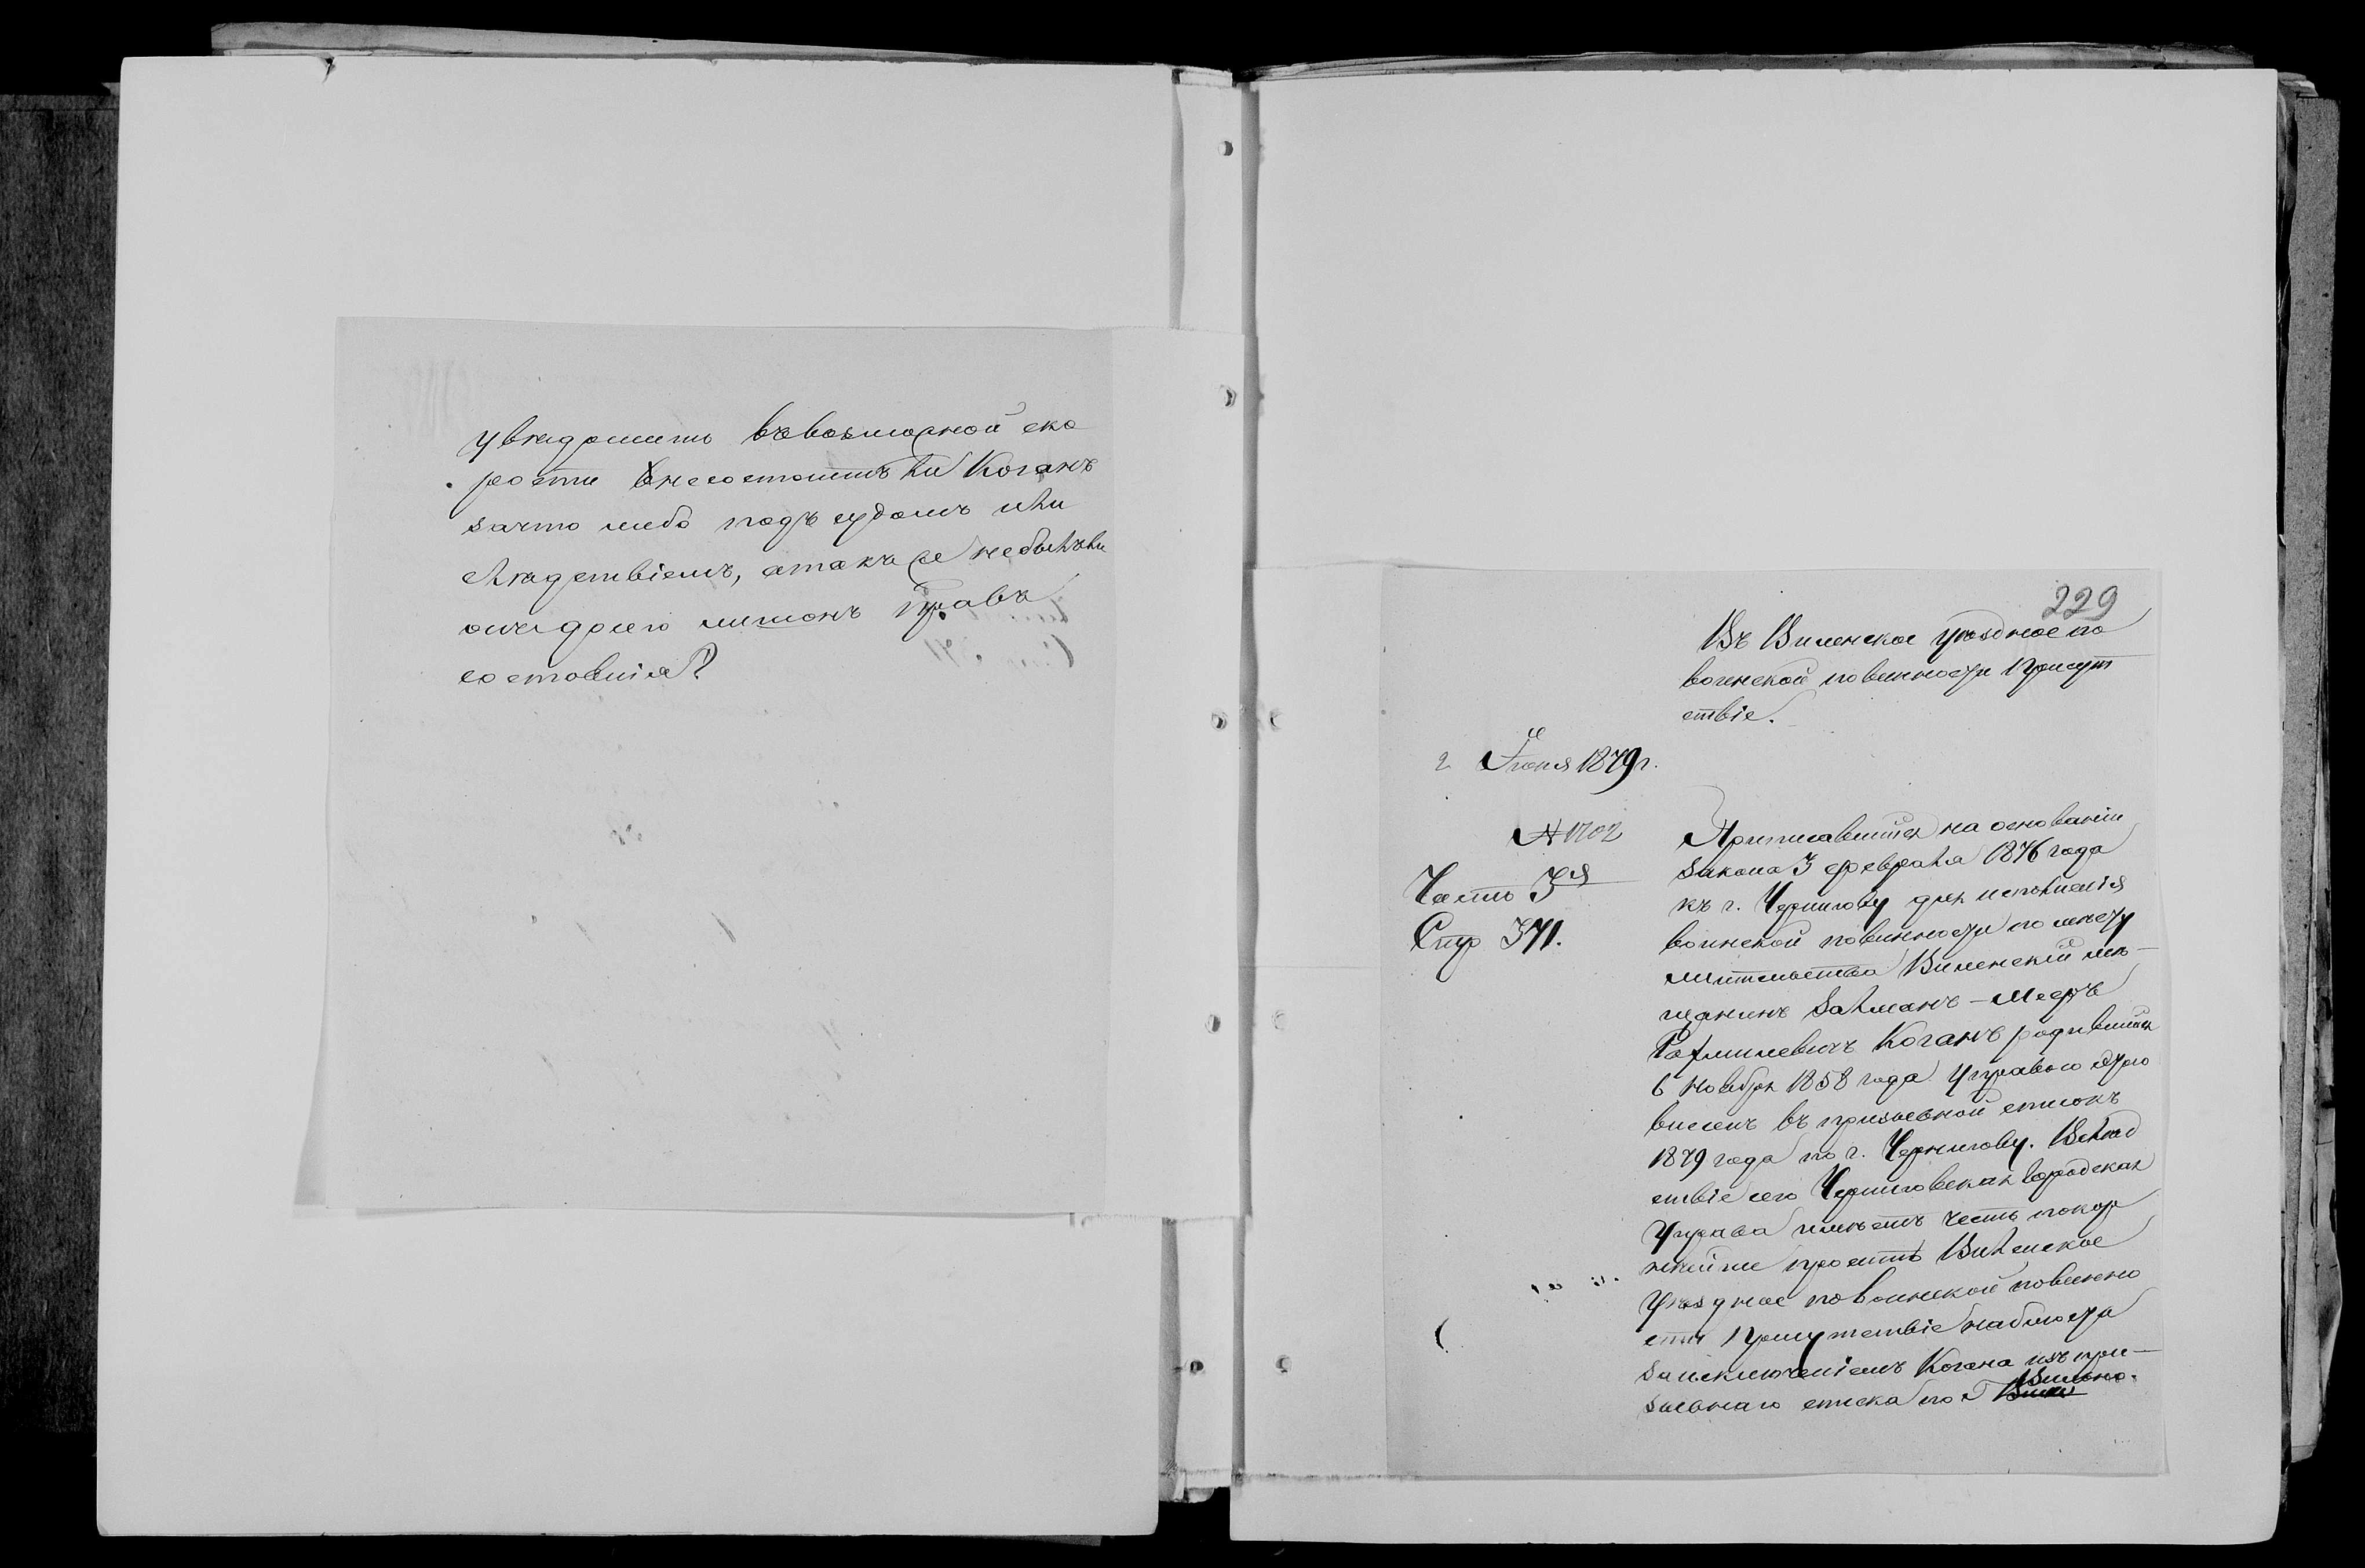 увѣдомить въ возможной ско
рости не состоитъ ли Коганъ
за что либо подъ судомъ или
слѣдствіемъ, а также не былъ ли
осужденъ лишонъ правъ
состоянія?
229
Въ Виленское уѣздное по
воинской повинности Присут
ствіе.
2 Іюня 1879 г.
№ 1702
Часть 3я
Стр 371.
Приписавшійся на основаніи
закона 3 февраля 1876 года
къ г. Чернигову для исполненія
воинской повинности по мѣсту
жительства Виленскій мѣ-
щанинъ Залманъ-Мееръ
Коганъ родившійся
6 Ноября 1858 года Управою
внесенъ въ призывной списокъ
1879 года по г. Чернигову. Вслѣд
ствіе сего Черниговская городская
Управа имѣетъ честь покор
нѣйше просить Виленское
уѣздное по воинской повинно
сти Присутствіе
за исключеніемъ Когана изъ при-
зывнаго списка по г Вильно.